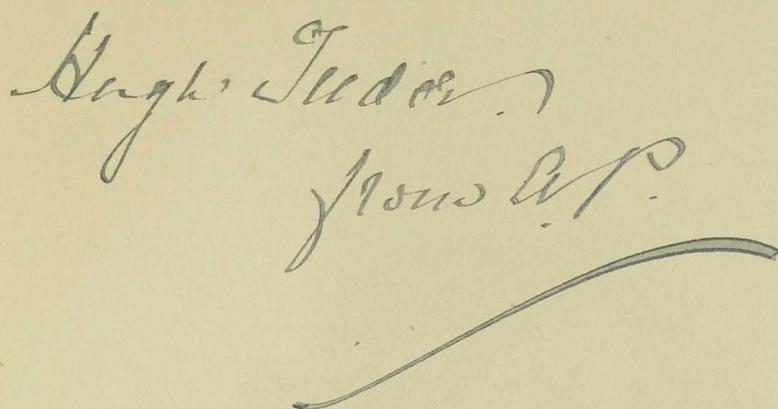 Hugh Tudor.
from A.P.